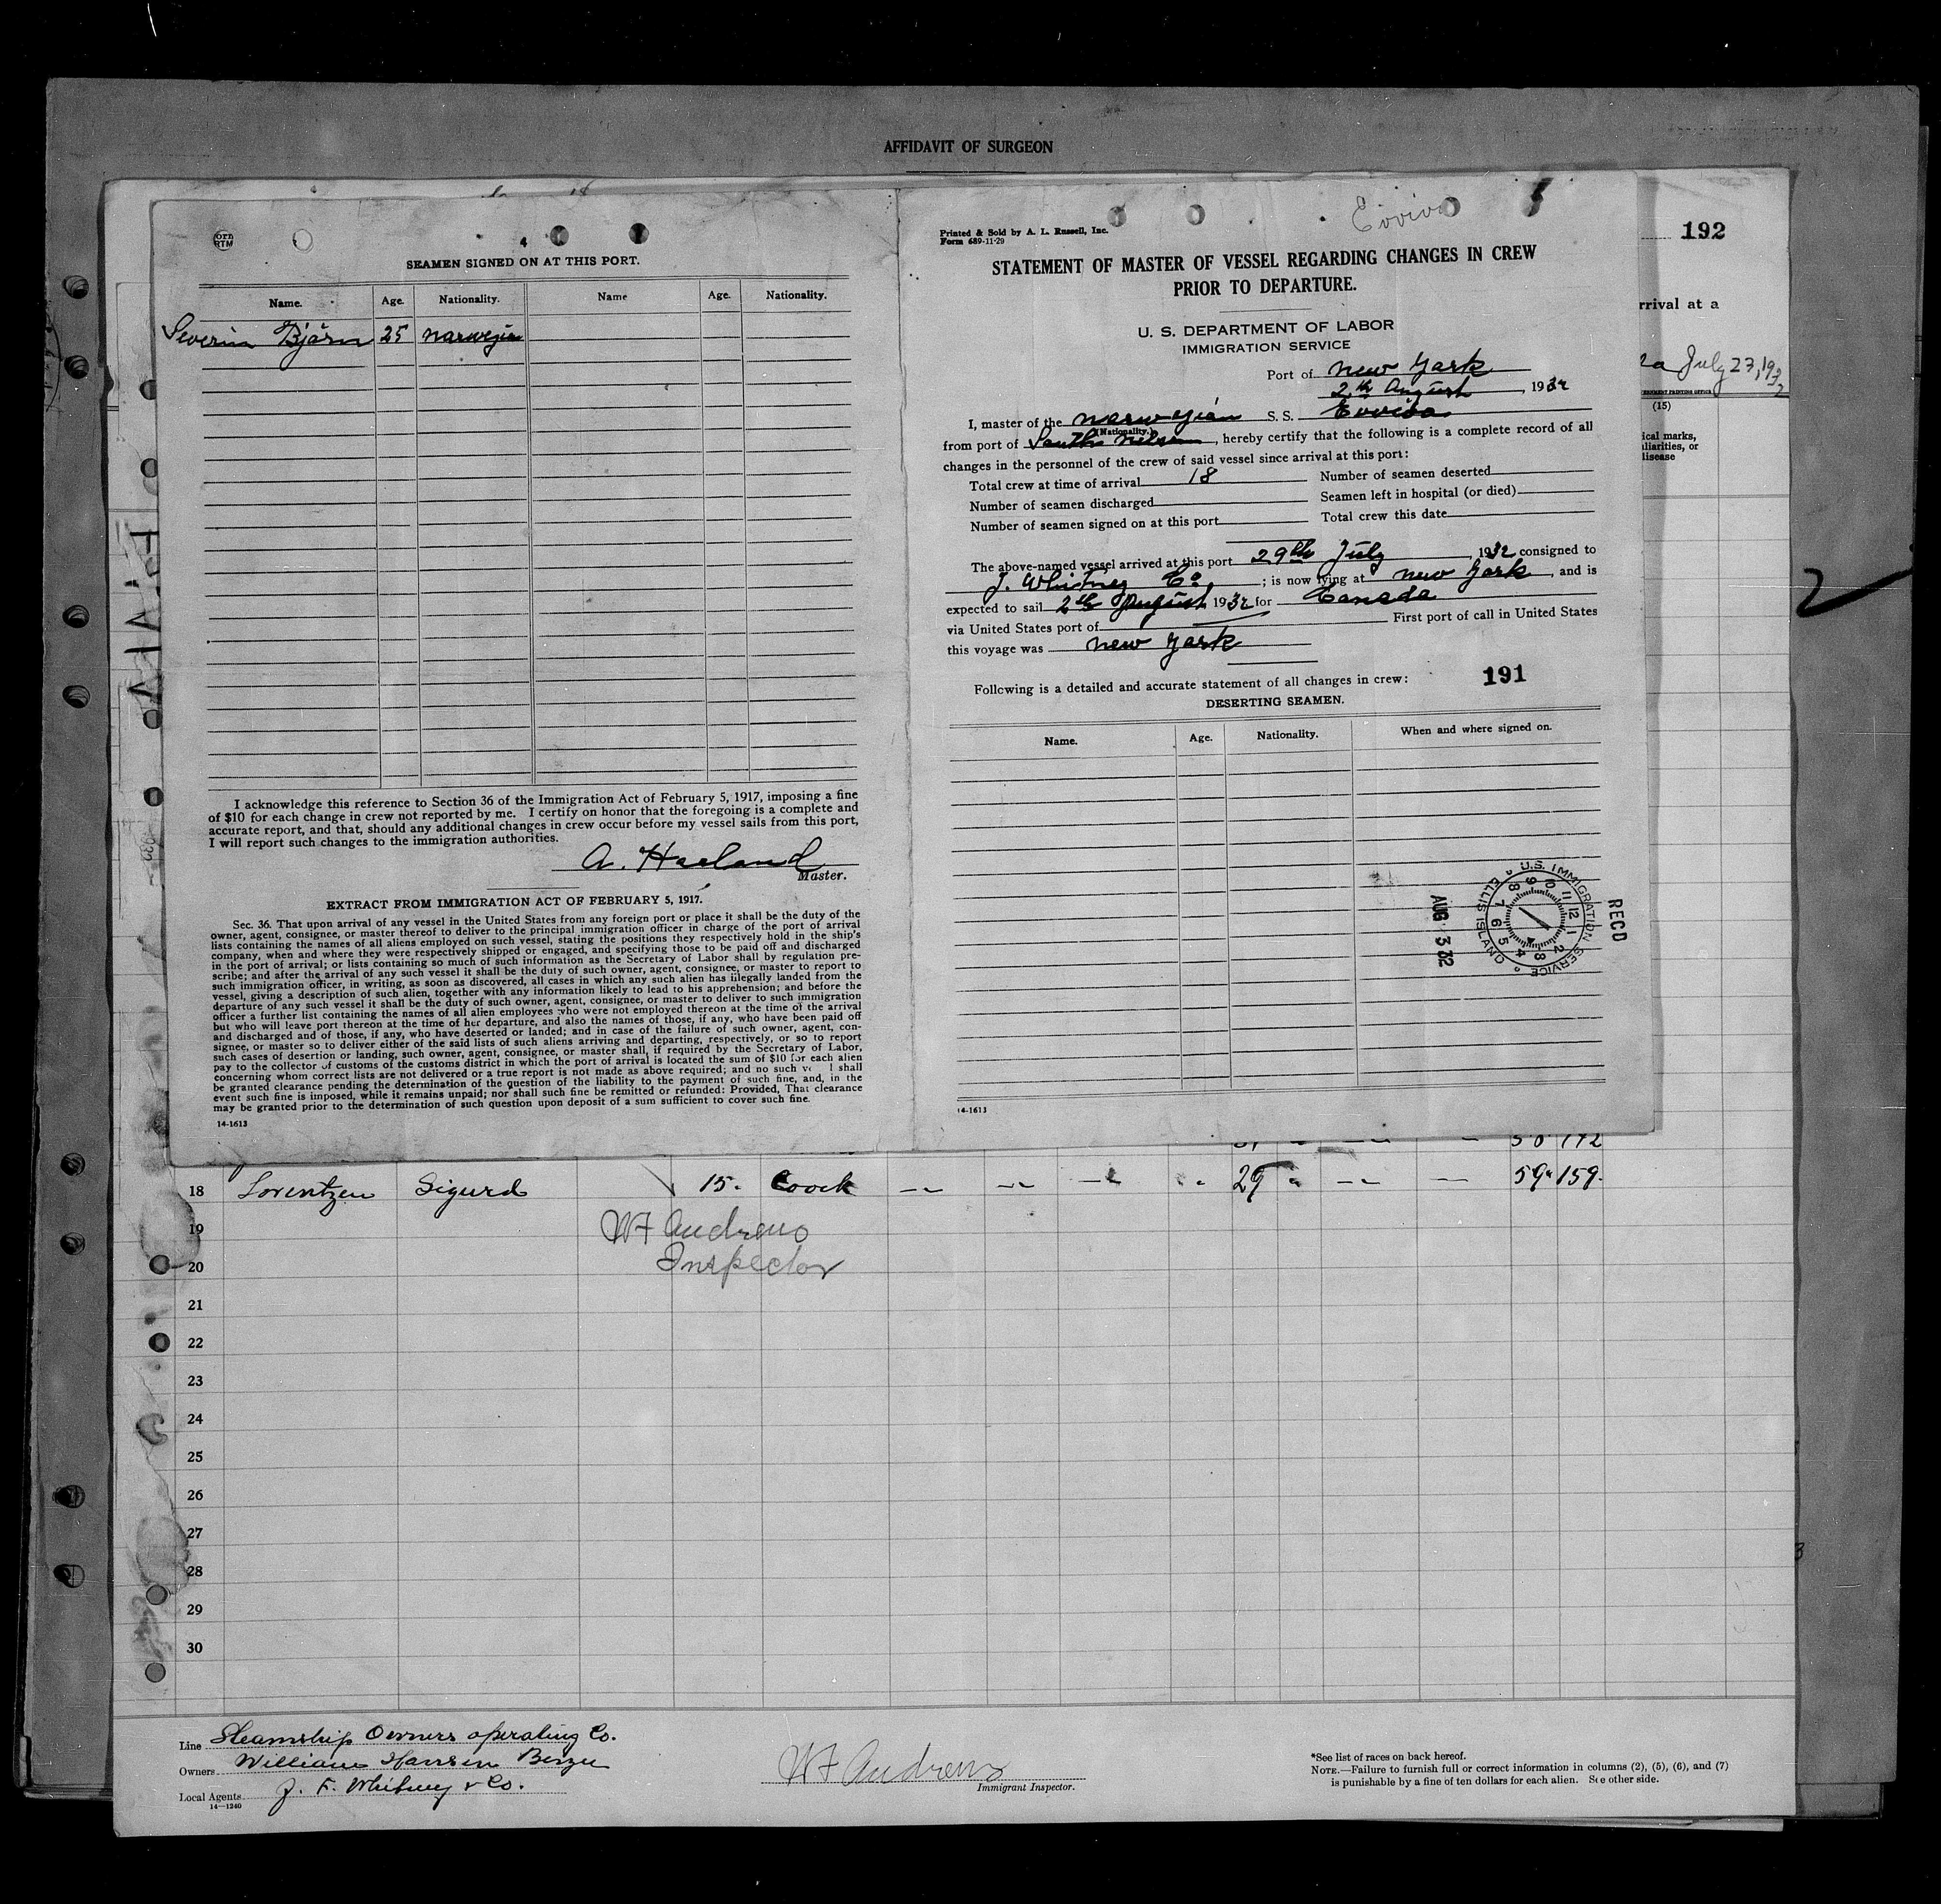 AFFIDAVIT OF SURGEON
4
SEAMEN SIGNED ON AT THIS PORT.
Name. Age. Nationality. Name Age. Nationality.
Severin Bjørn 25 norwegian
I acknowledge this reference to Section 36 of the Immigration Act of February 5, 1917, imposing a fine
of $10 for each change in crew not reported by me. I certify on honor that the foregoing is a complete and
accurate report, and that, should any additional changes in crew occur before my vessel sails from this port,
I will report such changes to the immigration authorities.
A. Haaland
Master.
EXTRACT FROM IMMIGRATION ACT OF FEBRUARY 5, 1917.
Sec. 36. That upon arrival of any vessel in the United States from any foreign port or place it shall be the duty of the
owner, agent, consignee, or master thereof to deliver to the principal immigration officer in charge of the port of arrival
lists containing the names of all aliens employed on such vessel, stating the positions they respectively hold in the ship's
company, when and where they were respectively shipped or engaged, and specifying those to be paid off and discharged
in the port of arrival; or lists containing so much of such information as the Secretary of Labor shall by regulation pre-
scribe; and after the arrival of any such vessel it shall be the duty of such owner, agent, consignee, or master to report to
such immigration officer, in writing, as soon as discovered, all cases in which any such alien has illegally landed from the
vessel, giving a description of such alien, together with any information likely to lead to his apprehension; and before the
departure of any such vessel it shall be the duty of such owner, agent, consignee, or master to deliver to such immigration
officer a further list containing the names of all alien employees who were not employed thereon at the time of the arrival
but who will leave port thereon at the time of her departure, and also the names of those, if any, who have been paid off
and discharged and of those, if any, who have deserted or landed; and in case of the failure of such owner, agent, con-
signee, or master so to deliver either of the said lists of such aliens arriving and departing, respectively, or so to report
such cases of desertion or landing, such owner, agent, consignee, or master shall, if required by the Secretary of Labor,
pay to the collector of customs of the customs district in which the port of arrival is located the sum of $10 for each alien
concerning whom correct lists are not delivered or a true report is not made as above required; and no such ve l shall
be granted clearance pending the determination of the question of the liability to the payment of such fine, and, in the
event such fine is imposed, while it remains unpaid; nor shall such fine be remitted or refunded: Provided, That clearance
may be granted prior to the determination of such question upon deposit of a sum sufficient to cover such fine.
14-1613
Printed & Sold by A. L. Russell, Inc.
Form 689-11-29
Evviva
STATEMENT OF MASTER OF VESSEL REGARDING CHANGES IN CREW
PRIOR TO DEPARTURE.
U. S. DEPARTMENT OF LABOR
IMMIGRATION SERVICE
Port of New York
2th August, 1932
I, master of the norwegian S. S. Evviva
(Nationality.)
from port of South Nelson, hereby certify that the following is a complete record of all
changes in the personnel of the crew of said vessel since arrival at this port:
Total crew at time of arrival 18 Number of seamen deserted
Number of seamen discharged Seamen left in hospital (or died)
Number of seamen signed on at this port Total crew this date
The above-named vessel arrived at this port 29th July, 1932 consigned to
J. Whitney Co.; is now lying at New York, and is
expected to sail 2th August 1932 for Canada
via United States port of First port of call in United States
this voyage was New York
191
Following is a detailed and accurate statement of all changes in crew:
DESERTING SEAMEN.
Name. Age. Nationality. When and where signed on.
RECD
U.S. IMMIGRATION SERVICE ELLIS ISLAND
AUG 3 32
14-1613
192
rrival at a
July 27, 1932
(15)
ical marks,
liarities, or
disease
2
18 Lorentzen Sigurd 15. Coock 29 59" 159.
19
20
W F Andrews
Inspector
21
22
23
24
25
26
27
28
29
30
Line Steamship Owners operating Co.
Owners William Hansen Bergen
Local Agents J. F. Whitney & Co.
14-1240
W F Andrews
Immigrant Inspector.
*See list of races on back hereof.
NOTE.—Failure to furnish full or correct information in columns (2), (5), (6), and (7)
is punishable by a fine of ten dollars for each alien. See other side.